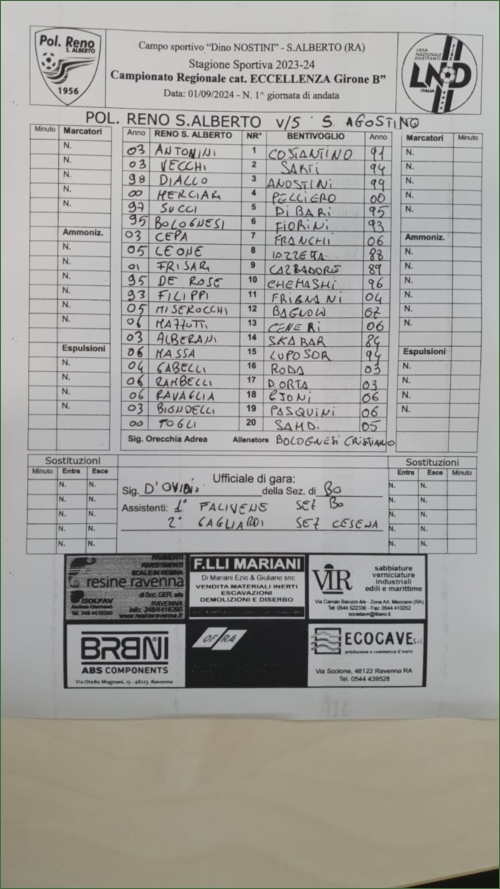 Pol. Reno
S. ALBERTO
1956
Campo sportivo "Dino NOSTINI" - S.ALBERTO (RA)
Stagione Sportiva 2023-24
Campionato Regionale cat. ECCELLENZA Girone B"
Data: 01/09/2024 - N. 1^ giornata di andata
LEGA NAZIONALE DILETTANTI
LND
ITALIA
POL. RENO S.ALBERTO V/S S AGOSTINO
Minuto Marcatori Anno RENO S. ALBERTO NR° BENTIVOGLIO Anno Marcatori Minuto
N. 03 ANTONINI 1 COSTANTINO 91 N.
N. 03 VECCHI 2 SARTI 94 N.
N. 98 DIALLO 3 AGOSTINI 99 N.
N. 00 MERCIARI 4 PELLIERO 00 N.
N. 97 SUCCI 5 DI BARI 95 N.
N. 95 BOLOGNESI 6 FIORINI 93 N.
Ammoniz. 03 CEPA 7 FRANCHI 06 Ammoniz.
N. 05 LEONE 8 IAZZETTA 88 N.
N. 01 FRISARI 9 89 N.
N. 95 DE ROSE 10 96 N.
N. 93 FILIPPI 11 FRIGNANI 04 N.
N. 05 MISEROCCHI 12 BAGNOLI N.
N. 06 MAZZOTTI 13 CENERI 06 N.
N. 03 ALBERANI 14 SKABAR 84 N.
Espulsioni 06 MASSA 15 94 Espulsioni
N. 04 GABELLI 16 RODA 03 N.
N. 06 RAMBELLI 17 DORTA 03 N.
N. 06 RAVAGLIA 18 06 N.
N. 03 BIONDELLI 19 PASQUINI 06 N.
00 TOGLI 20 05
Sig. Orecchia Adrea Allenatore BOLOGNESI CRISTIANO
Sostituzioni Sostituzioni
Minuto Entra Esce Ufficiale di gara: Entra Esce Minuto
N. N. Sig. D'OVIDIO della Sez. di BO N. N.
N. N. Assistenti: 1° FALIVENE SEZ BO N. N.
N. N. 2° GAGLIARDI SEZ CESENA N. N.
N. N. N. N.
N. N. N. N.
PAVIMENTI
RIVESTIMENTI
SCALE IN RESINA
resine ravenna
ISOLPAV
di Soc. GER. srls
RAVENNA
F.LLI MARIANI
Di Mariani Ezio & Giuliano snc
VENDITA MATERIALI INERTI
ESCAVAZIONI
DEMOLIZIONI E DISERBO
VIR
sabbiature
verniciature
industriali
edili e marittime
Tel. 0544 522336 - Fax: 0544 410252
BRBNI
ABS COMPONENTS
Via Otello Magnani, 15 - 48123, Ravenna
OFRA
ECOCAVE S.r.l.
produzione e commercio d'inerti
Via Scolone, 48122 Ravenna RA
Tel. 0544 439528